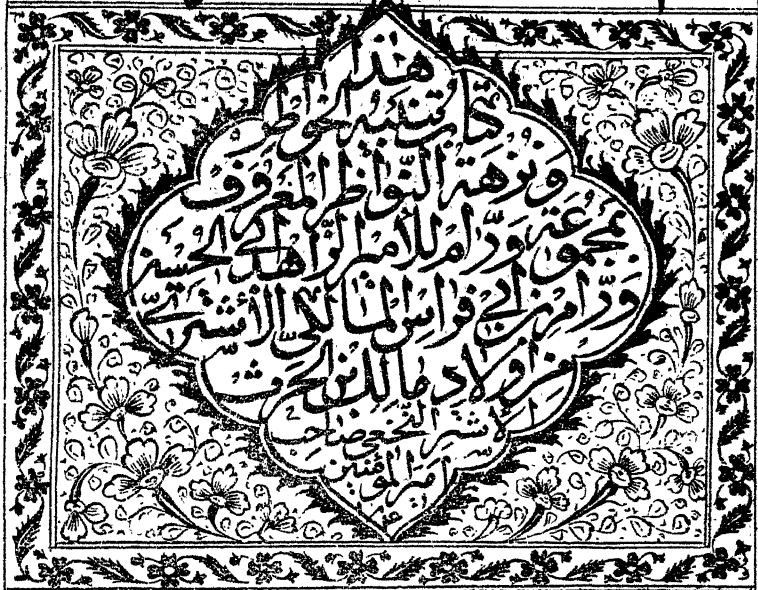 هذا
كتاب تنبيه الخواطر
و نزهة النواظر المعروف
بمجموعة ورّام للأمير الزاهد أبي الحسين
ورّام بن أبي فراس المالكيّ الأشتريّ
من أولاد مالك بن الحرث
الأشتر النخعي صاحب
أمير المؤمنين
ع